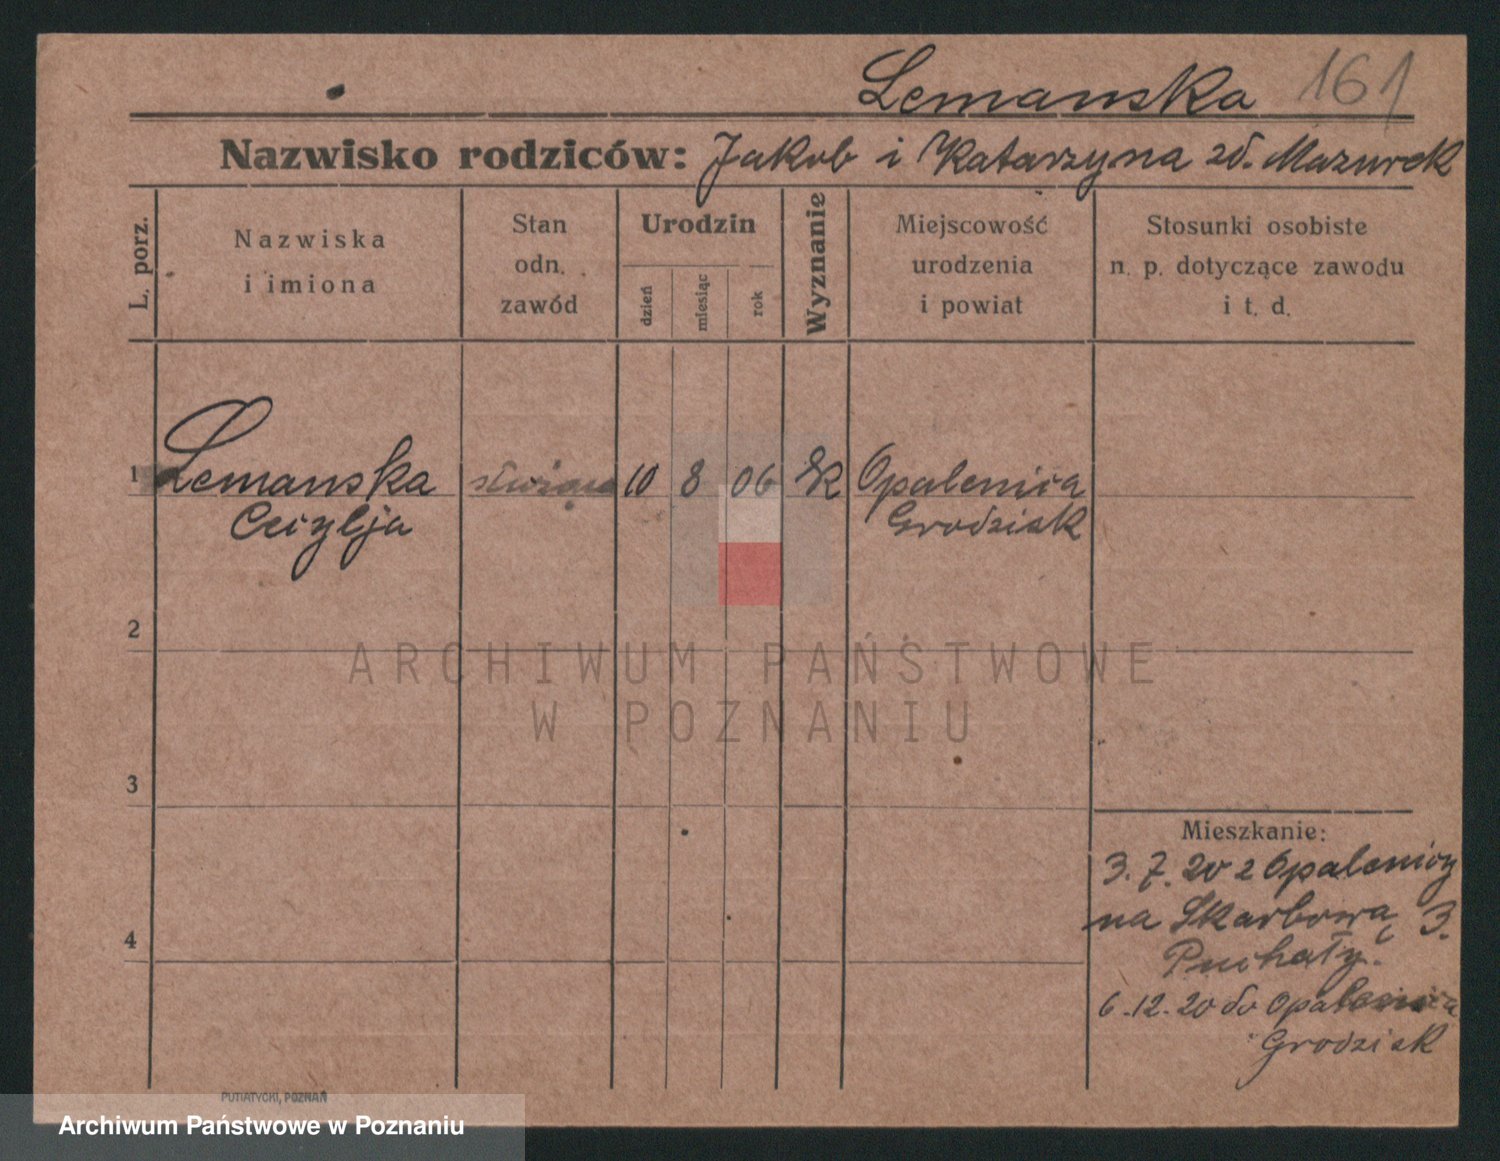 Lemanska 161
Nazwisko rodziców: Jakob i Katarzyna zd. Mazurek
L. porz.
Nazwiska
i imiona
Stan
odn.
zawód
Urodzin
dzień
miesiąc
rok
Wyznanie
Miejscowość
urodzenia
i powiat
Stosunki osobiste
n. p. dotyczące zawodu
i t. d.
1 Lemanska 10 8 06 RK Opalenica
Cecylja Grodzisk
2
ARCHIWUM PAŃSTWOWE
W POZNANIU
3
Mieszkanie:
3. 7. 20 z Opalenicy
na Skarbową 3.
4
Puchały.
6.12.20 do Opalenica
Grodzisk
PUTIATYCKI, POZNAŃ
Archiwum Państwowe w Poznaniu